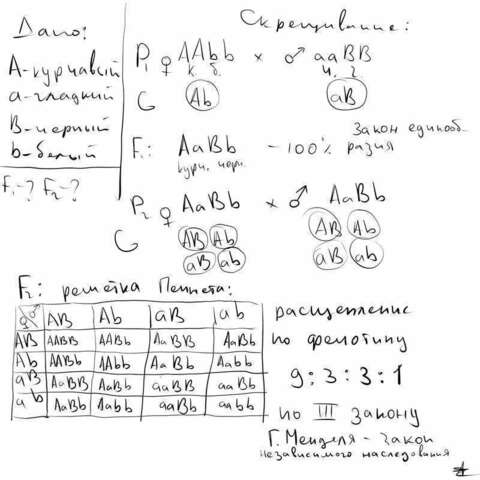 Дано:
A-курчавый
a-гладкий
B-черный
b-белый
F₁-? F₂-?
Скрещивание:
P₁ ♀ AAbb × ♂ aaBB
к. б. ч.
G Ab aB
F₁: AaBb - 100%
курч. черн.
Закон единооб-
разия
P₂ ♀ AaBb × ♂ AaBb
G AB Ab AB Ab
aB ab aB ab
F₂: решетка Пеннета:
♀ ♂ AB Ab aB ab
AB AABB AABb AaBB AaBb
Ab AABb AAbb AaBb Aabb
aB AaBB AaBb aaBB aaBb
ab AaBb Aabb aaBb aabb
расщепление
по фенотипу
9:3:3:1
по III закону
Г. Менделя - закон
независимого наследования